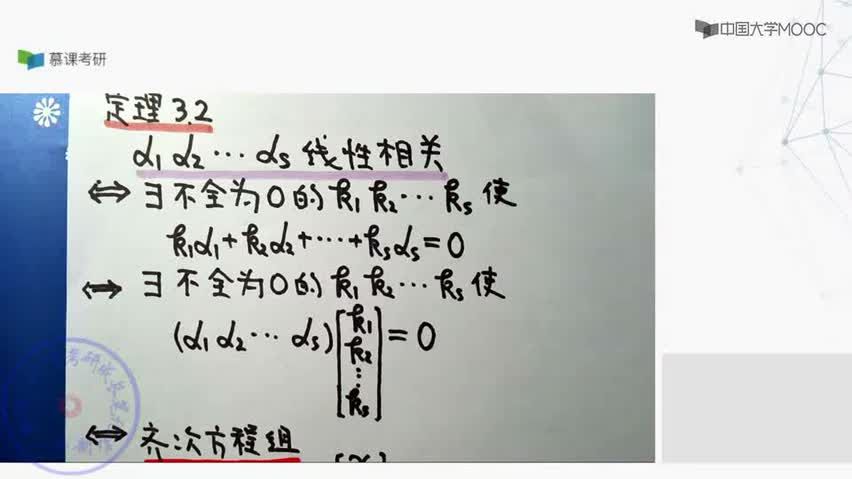 中国大学MOOC
慕课考研
定理 3.2
α₁ α₂ ⋯ αₛ 线性相关
⟺ ∃ 不全为 0 的 k₁ k₂ ⋯ kₛ 使
k₁α₁+k₂α₂+⋯+kₛαₛ=0
⟺ ∃ 不全为 0 的 k₁ k₂ ⋯ kₛ 使
(α₁ α₂ ⋯ αₛ)[k₁ k₂ ⋮ kₛ]=0
⟺ 齐次方程组